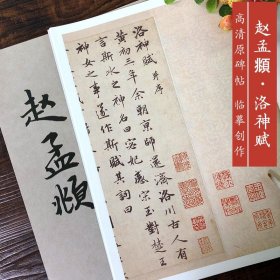 赵孟頫·洛神赋
高清原碑帖 临摹创作
洛神賦 并序
黄初三年余朝京師還濟洛川古人有
言斯水之神名曰宓妃感宋玉對楚王
神女之事遂作斯賦其詞曰
赵孟頫